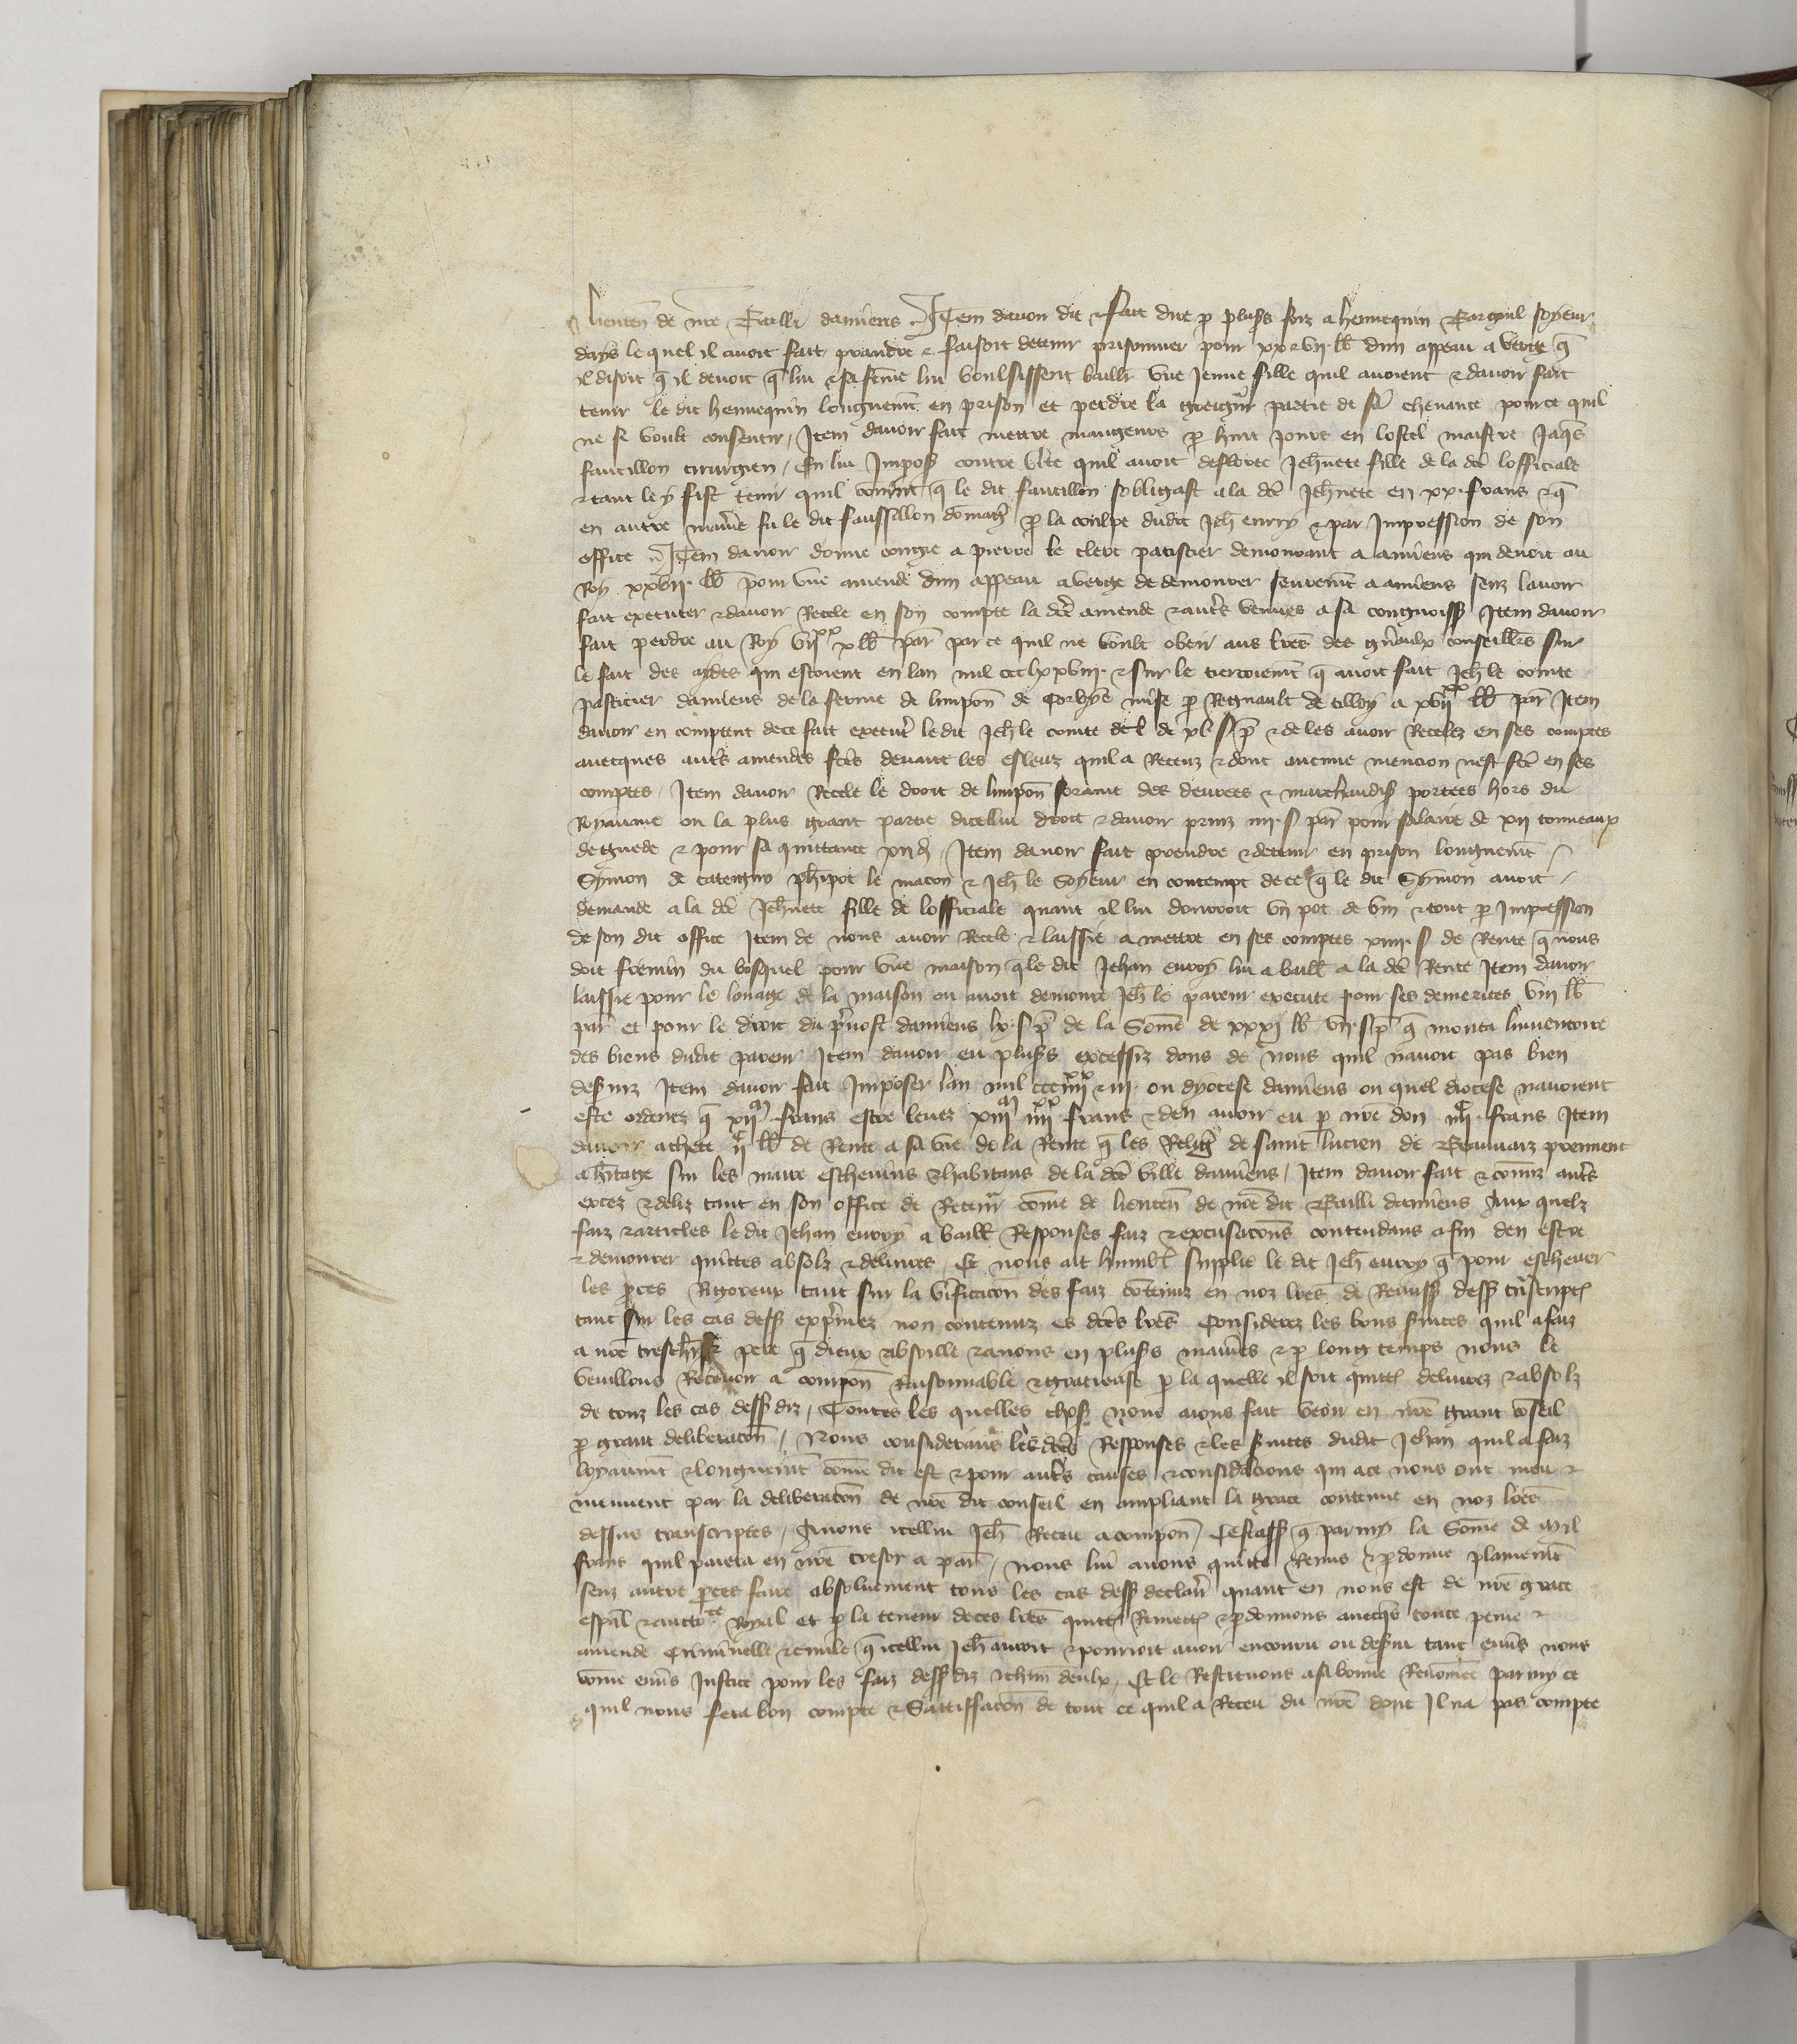 lieuten de nre Bailli damiens Item davoir dit & fait dire p plus foiz a hennequin soyeur
days le quel il avoit fait prandre & faisoit detenir prisonnier pour xx & vij lb dun appeau a verge q
il disoit q il devoit q lui & sa feme lui voulsissent baillr une jeune fille quil avoient & davoir fait
tenir le dit hennequin longuemt en prison et perdre la greigur partie de sa chevance pource quil
ne se voult consentir Item davoir fait mettre mangeurs p huit jours en lostel maistre Jaqs
fautillon cirurgien En lui Imposs contre vite quil avoit deflore Jehnete fille de la dce lofficiale
& tant le y fist tenir quil convint q le dit fautillon sobligast a la dce Jehnete en xx frans & q
en autre maniè fu le dit faussillon domagie p la coulpe dudit Jeh enrry & par Impression de son
office Item davoir donne congie a pierre le clerc patiscier demourant a amiens qui devoit au
Roy xxvij lb pour une amende dun appeau a verge de demourer seuremt a amiens senz lavoir
fait executer & davoir Recele en son compte la dce amende & autrs venues a sa congnoiss Item davoir
fait perdre au Roy vijxx x lb par par ce quil ne voult obeir aus lres des gnaulx conseillers sur
le fait des aydes qui estoient en lan mil ccclxxviij & sur le tiercoiemt q avoit fait Jeh le comte
pasticier damiens de la ferme de limpon de Corbye mise p Regnault de tilloy a xvijxx lb par Item
davoir en comptent de ce fait executr le dit Jeh le comte de l de xl s p & de les avoir Recelez en ses comptes
avecques autrs amendes fces devant les esleuz quil a Receuz & dont aucune mencion nest fce en ses
comptes Item davoir Recele le droit de limpon foraine des denrees & marchandis portees hors du
Royaume ou la plus grant partie dicellui droit & davoir prinz iiij s par pour salaire de xij tonneaux
de guede & pour sa quittance xij d Item davoir fait prendre & detenir en prison longuemt
Symon de phipot le macon & Jeh le Soyeur en contempt de ce q le dit Symon avoit
demande a la dce Jehnete fille de lofficiale quant il lui donrroit un pot de vin & tout p Impression
de son dit office Item de nous avoir Recele & laissie a mettre en ses comptes xiiij s de Rente q nous
doit fremin du bosquel pour une maison q le dit Jehan enrry lui a baill a la dce Rente Item davoir
laissie pour le louage de la maison ou avoit demoure Jeh le pareur execute pour ses demerites viij lb
par et pour le droit du prevost damiens lx s p de la Some de xxxj lb vij s p q monta linventoire
des biens dudit pareur Item davoir eu plus excessiz dons de nous quil navoit pas bien
desserviz Item davoir fait Imposer lan mil ccciiijxx & iij ou dyocese damiens ou quel diocese navoient
este ordenez q xijm frans estre levez xiijm iiijxx frans & den avoir eu p nre don iiijc frans Item
davoir achete ijc lb de Rente a sa vie de la Rente q les Relig de saint lucien de Beauvaiz prennent
a hitage sur les maire eschevins & habitans de la dce ville damiens Item davoir fait & comiz autrs
excez & deliz tant en son office de Recevr come de lieuten de nre dit Bailli damiens Aux quelz
faiz & articles le dit Jehan enrry a baill Responses faiz & excusacons contendans a fin den estre
& demourer quittes absolz & delivres Et nous ait humbl supplie le dit Jeh enrry q pour eschever
les proces Rigoreux tant sur la vificacon des faiz contenuz en noz lres de Remiss dess transcriptes
tant sur les cas dess exprimez non contenuz es dces lres Considerez les bons suices quil a faiz
a nre treschr s pere q dieux absoille & a nous en plus manies & p long temps nous le
veuillons Recevoir a compon Raisonnable & gracieuse p la quelle il soit quitte delivrez & absolz
de touz les cas dess diz Toutes les quelles choss nous avons fait veoir en nre grant conseil
p grant deliberacon Nous considerans les dces Responses & les suices dudit Jehan quil a faiz
loyaumt & longuemt come dit est & pour autrs causes & consideracions qui a ce nous ont meu &
meuvent par la deliberacon de nre dit conseil en ampliant la grace contenue en noz lres
dessus transcriptes Avons icellui Jeh Receu a compon Cestass q parmy la Some de Mil
frans quil paiera en nre tresor a par nous lui avons quitte Remis & pdonne plainemt
senz autre proces faire absoluement tous les cas dess declair quant en nous est de nre grace
espal & auctorite Royal et p la teneur de ces lres quittons Remettons & pdonnons avecqs toute peine &
amende Criminelle & civile q icellui Jeh avoit & pourroit avoir encouru ou desservi tant envs nous
come envs Justice pour les faiz dess diz & chun deulx Et le Restituons a sa bonne Renomee parmy ce
quil nous fera bon compte & Sattiffacon de tout ce quil a Receu du nre dont Il na pas compte